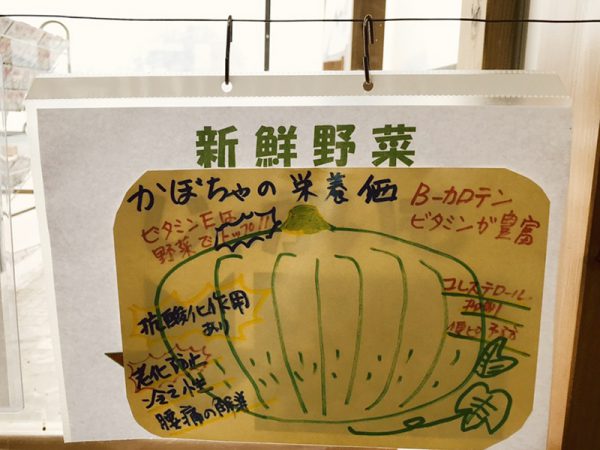 新鮮野菜
かぼちゃの栄養価
ビタミンEは
野菜でトップ!!
B-カロテン
ビタミンが豊富
抗酸化作用
あり
コレステロール
抑制
便ピ予防
老化防止
冷え性
腰痛の